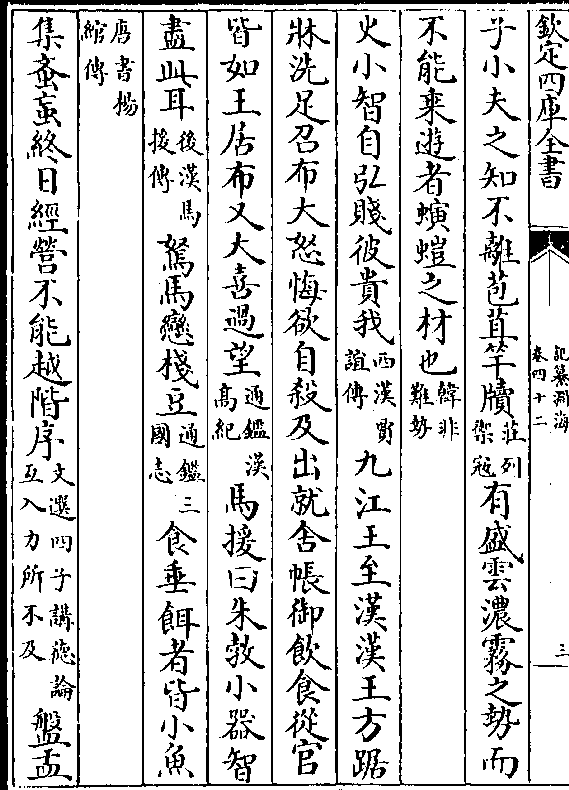 欽定四庫全書
記纂淵海
卷四十二
三
子小夫之知不離苞苴竿牘莊列禦冦有盛雲濃霧之勢而
不能乗遊者螾螘之材也韓非難勢
火小智自𢎞賤彼貴我西漢賈誼傳九江王至漢漢王方踞
牀洗足召布大怒悔欲自殺及出就舍帳御飲食從官
皆如王居布又大喜過望通鑑漢髙紀馬援曰朱勃小器智
盡此耳後漢馬援傳駑馬戀棧豆通鑑三國志食垂餌者皆小魚
唐書楊綰傳
集蚉䖟終日經營不能越階序文選四子講徳論互入力所不及盤盂